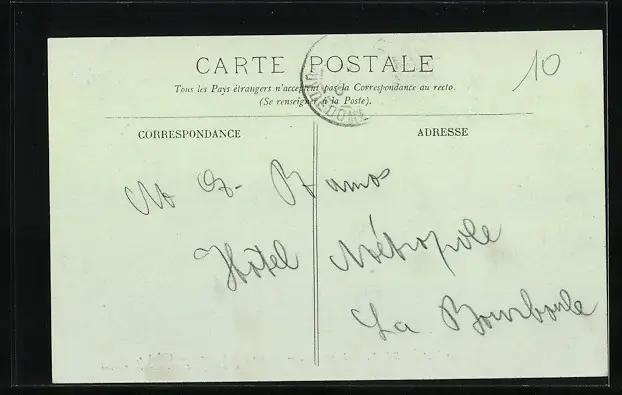 CARTE POSTALE
10
Tous les Pays étrangers n'acceptent pas la Correspondance au recto.
(Se renseigner à la Poste).
CORRESPONDANCE
ADRESSE
PUY DE DOME
Ramos
Hôtel Métropole
La Bourboule